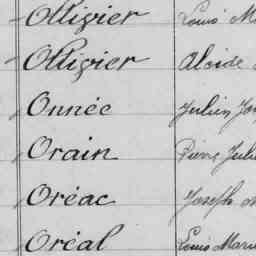 Ollivier Louis M
Ollivier Alcide
Onnée Julien Jo
Orain Pierre Juli
Oréac Joseph M
Oréal Louis Marie